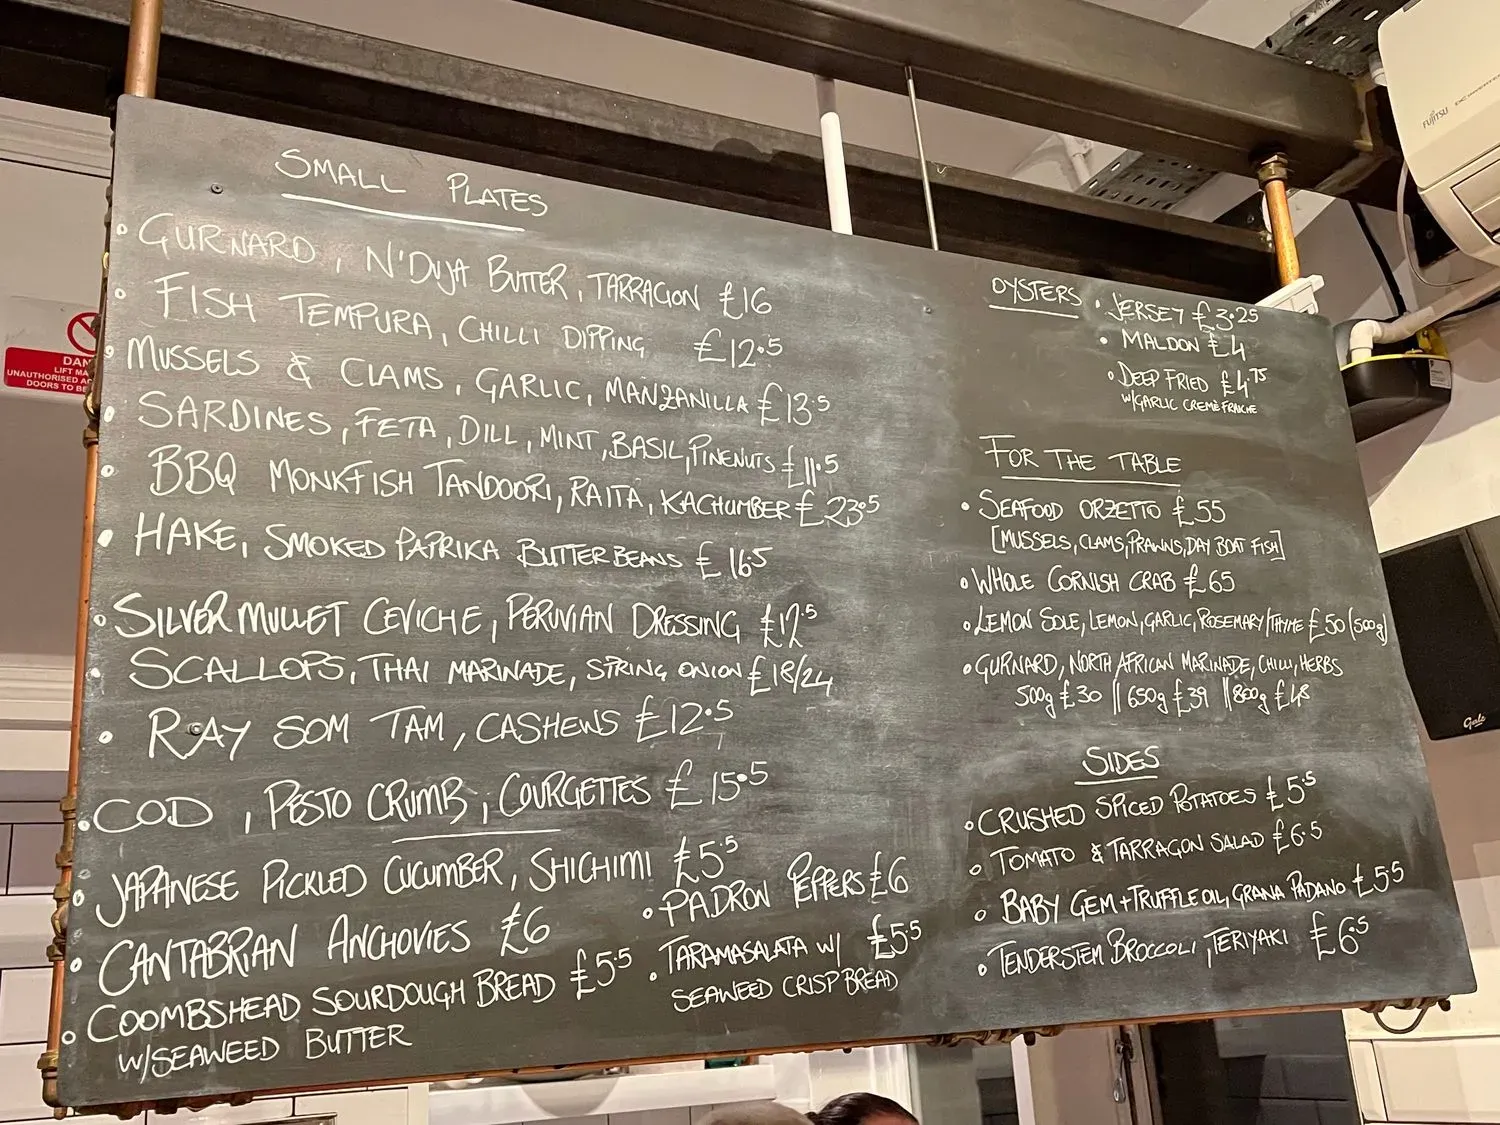 SMALL PLATES
GURNARD, N'DUJA BUTTER, TARRAGON £16
FISH TEMPURA, CHILLI DIPPING £12.5
MUSSELS & CLAMS, GARLIC, MANZANILLA £13.5
SARDINES, FETA, DILL, MINT, BASIL, PINENUTS £11.5
BBQ MONKFISH TANDOORI, RAITA, KACHUMBER £23.5
HAKE, SMOKED PAPRIKA BUTTERBEANS £16.5
SILVER MULLET CEVICHE, PERUVIAN DRESSING £12.5
SCALLOPS, THAI MARINADE, STRING ONION £18/24
RAY SOM TAM, CASHEWS £12.5
COD, PESTO CRUMB, COURGETTES £15.5
JAPANESE PICKLED CUCUMBER, SHICHIMI £5.5
CANTABRIAN ANCHOVIES £6
COOMBSHEAD SOURDOUGH BREAD £5.5
W/SEAWEED BUTTER
PADRON PEPPERS £6
TARAMASALATA W/ £5.5
SEAWEED CRISPBREAD
OYSTERS
JERSEY £3.25
MALDON £4
DEEP FRIED £4.75
W/GARLIC CREME FRAICHE
FOR THE TABLE
SEAFOOD ORZETTO £55
[MUSSELS, CLAMS, PRAWNS, DAY BOAT FISH]
WHOLE CORNISH CRAB £65
LEMON SOLE, LEMON, GARLIC, ROSEMARY/THYME £50 (500g)
GURNARD, NORTH AFRICAN MARINADE, CHILLI, HERBS
500g £30 || 650g £39 || 800g £48
SIDES
CRUSHED SPICED POTATOES £5.5
TOMATO & TARRAGON SALAD £6.5
BABY GEM + TRUFFLE OIL, GRANA PADANO £5.5
TENDERSTEM BROCCOLI, TERIYAKI £6.5
FUJITSU
DAN
LIFT MA
UNAUTHORISED AC
DOORS TO BE